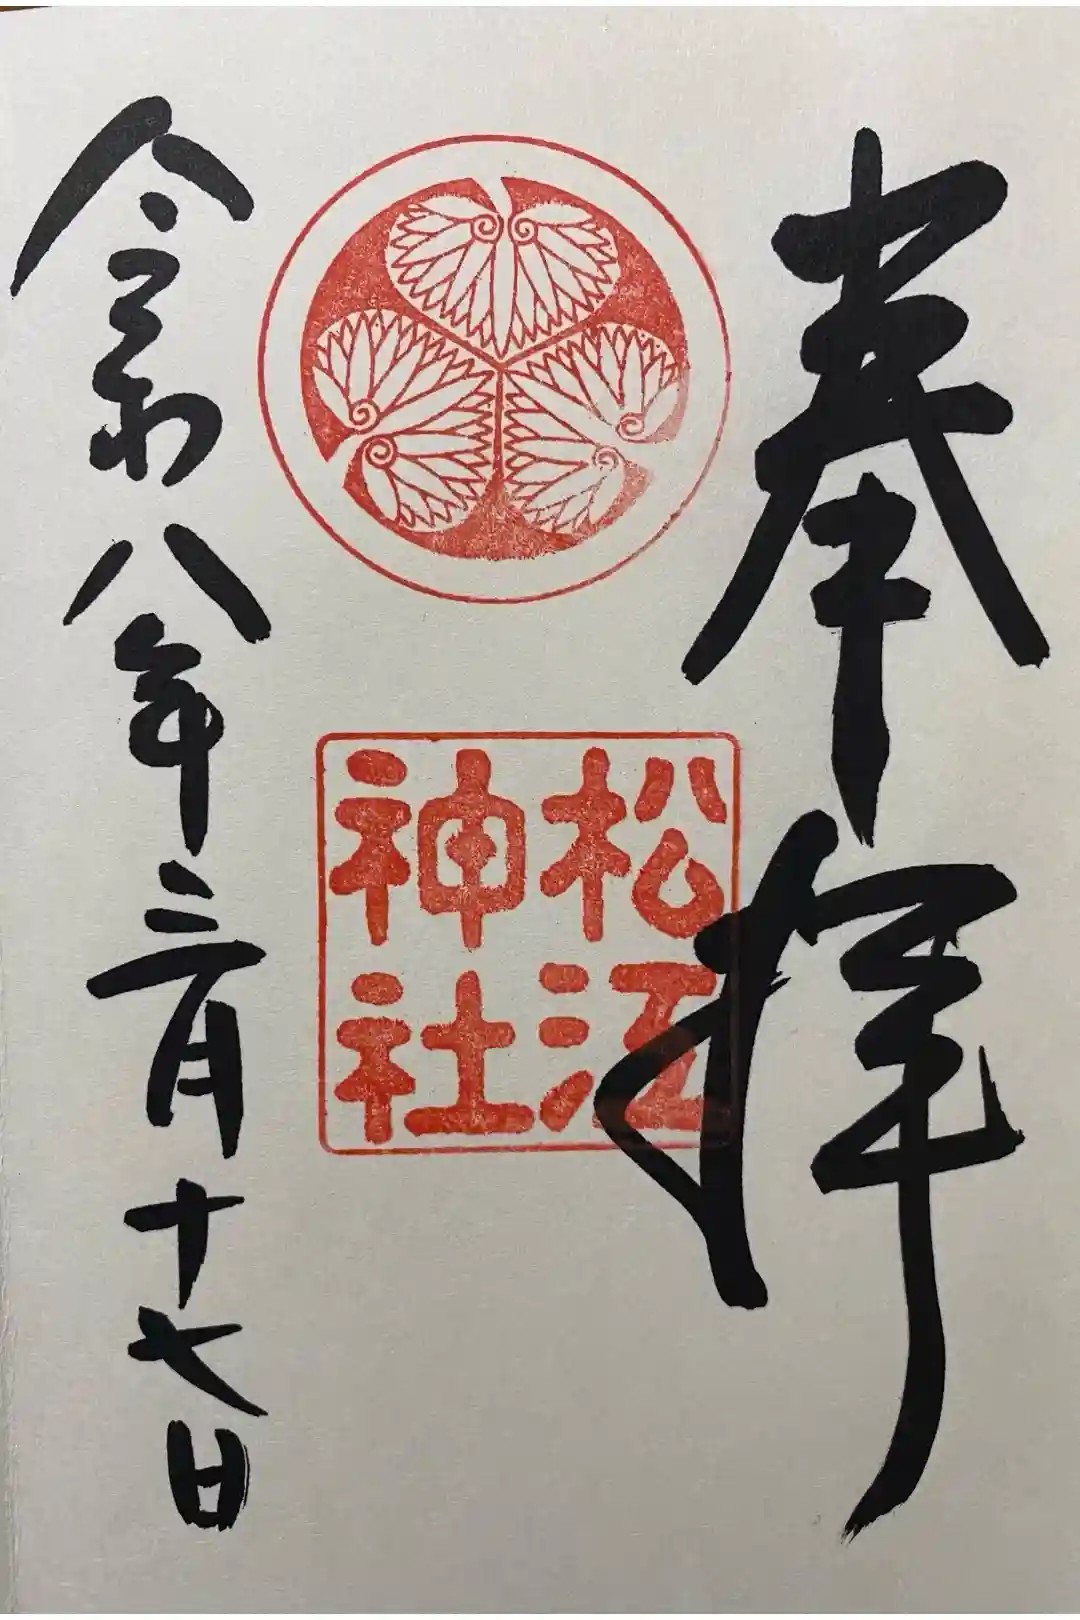 奉拝
松江
神社
令和八年三月十七日